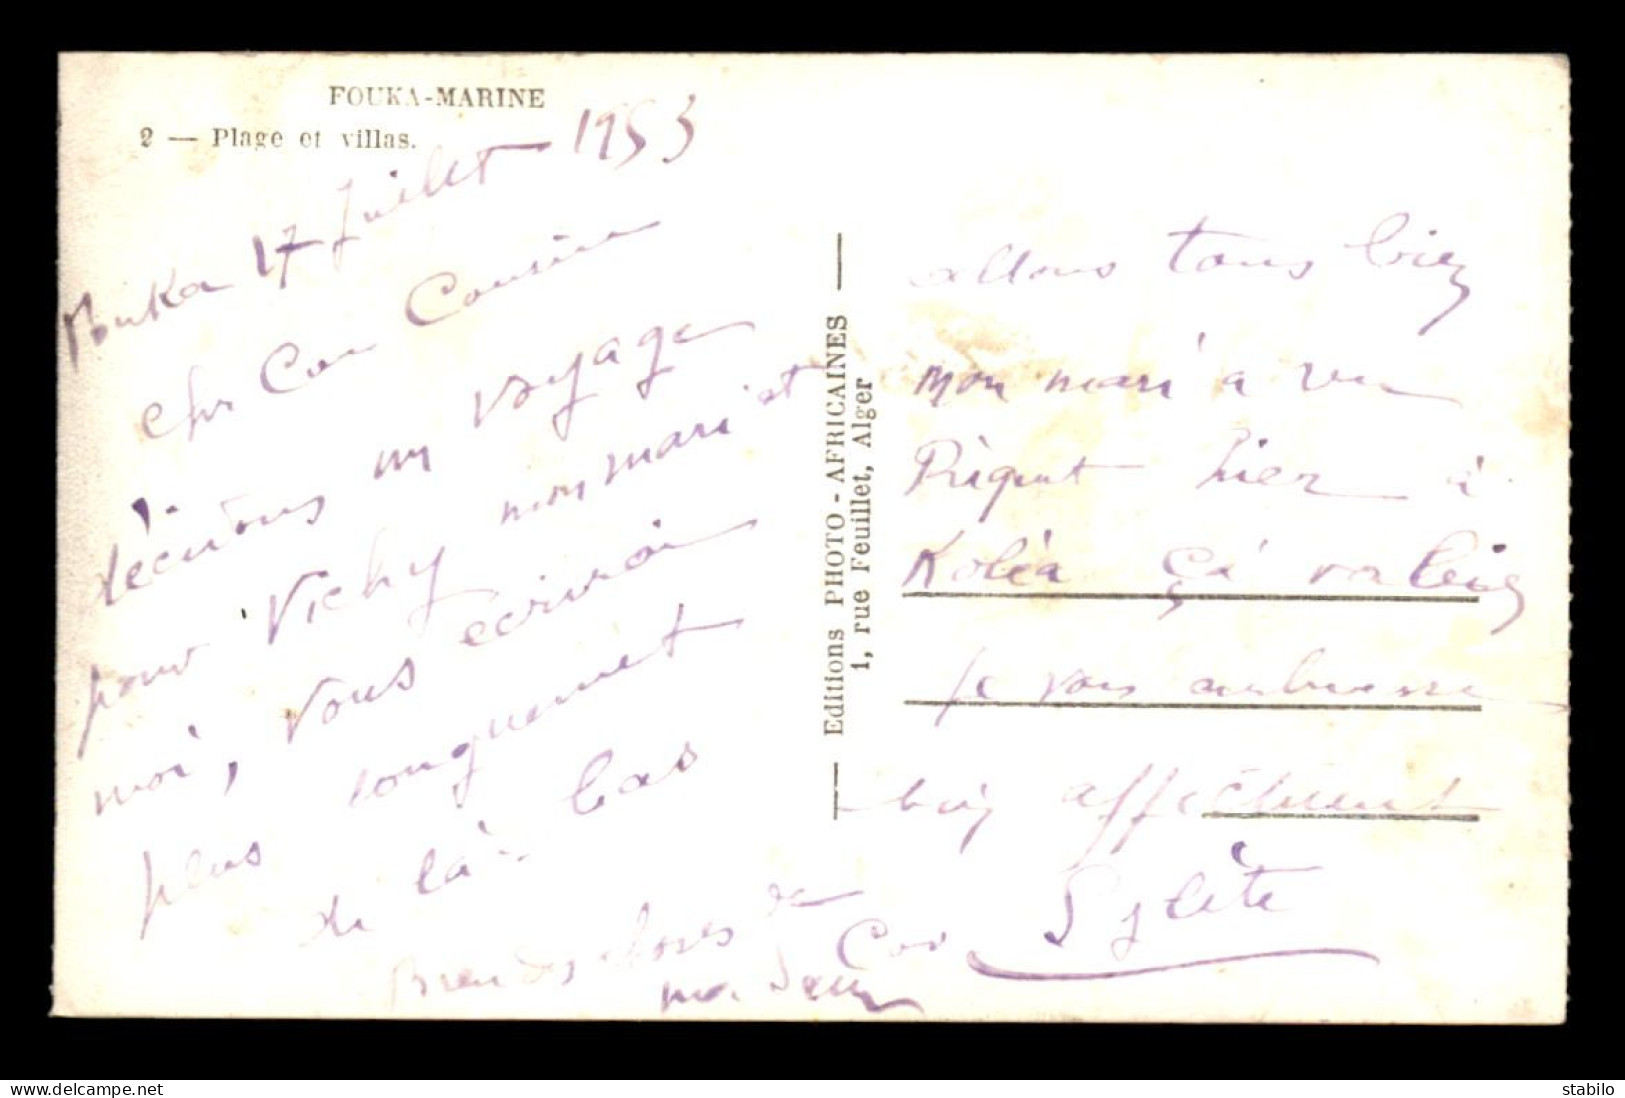 FOUKA-MARINE
2 — Plage et villas.
Fouka 17 Juillet 1953
Cher Cousine
décidons un voyage
pour Vichy mon mari et
moi, vous écrirai
plus longuement
de là-bas
Bien des choses de
ma Sœur
Editions PHOTO-AFRICAINES
1, rue Feuillet, Alger
allons tous bien
mon mari à vu
hier à
Koléa ça va bien
je vous embrasse
bien affectument
Cou
stabilo